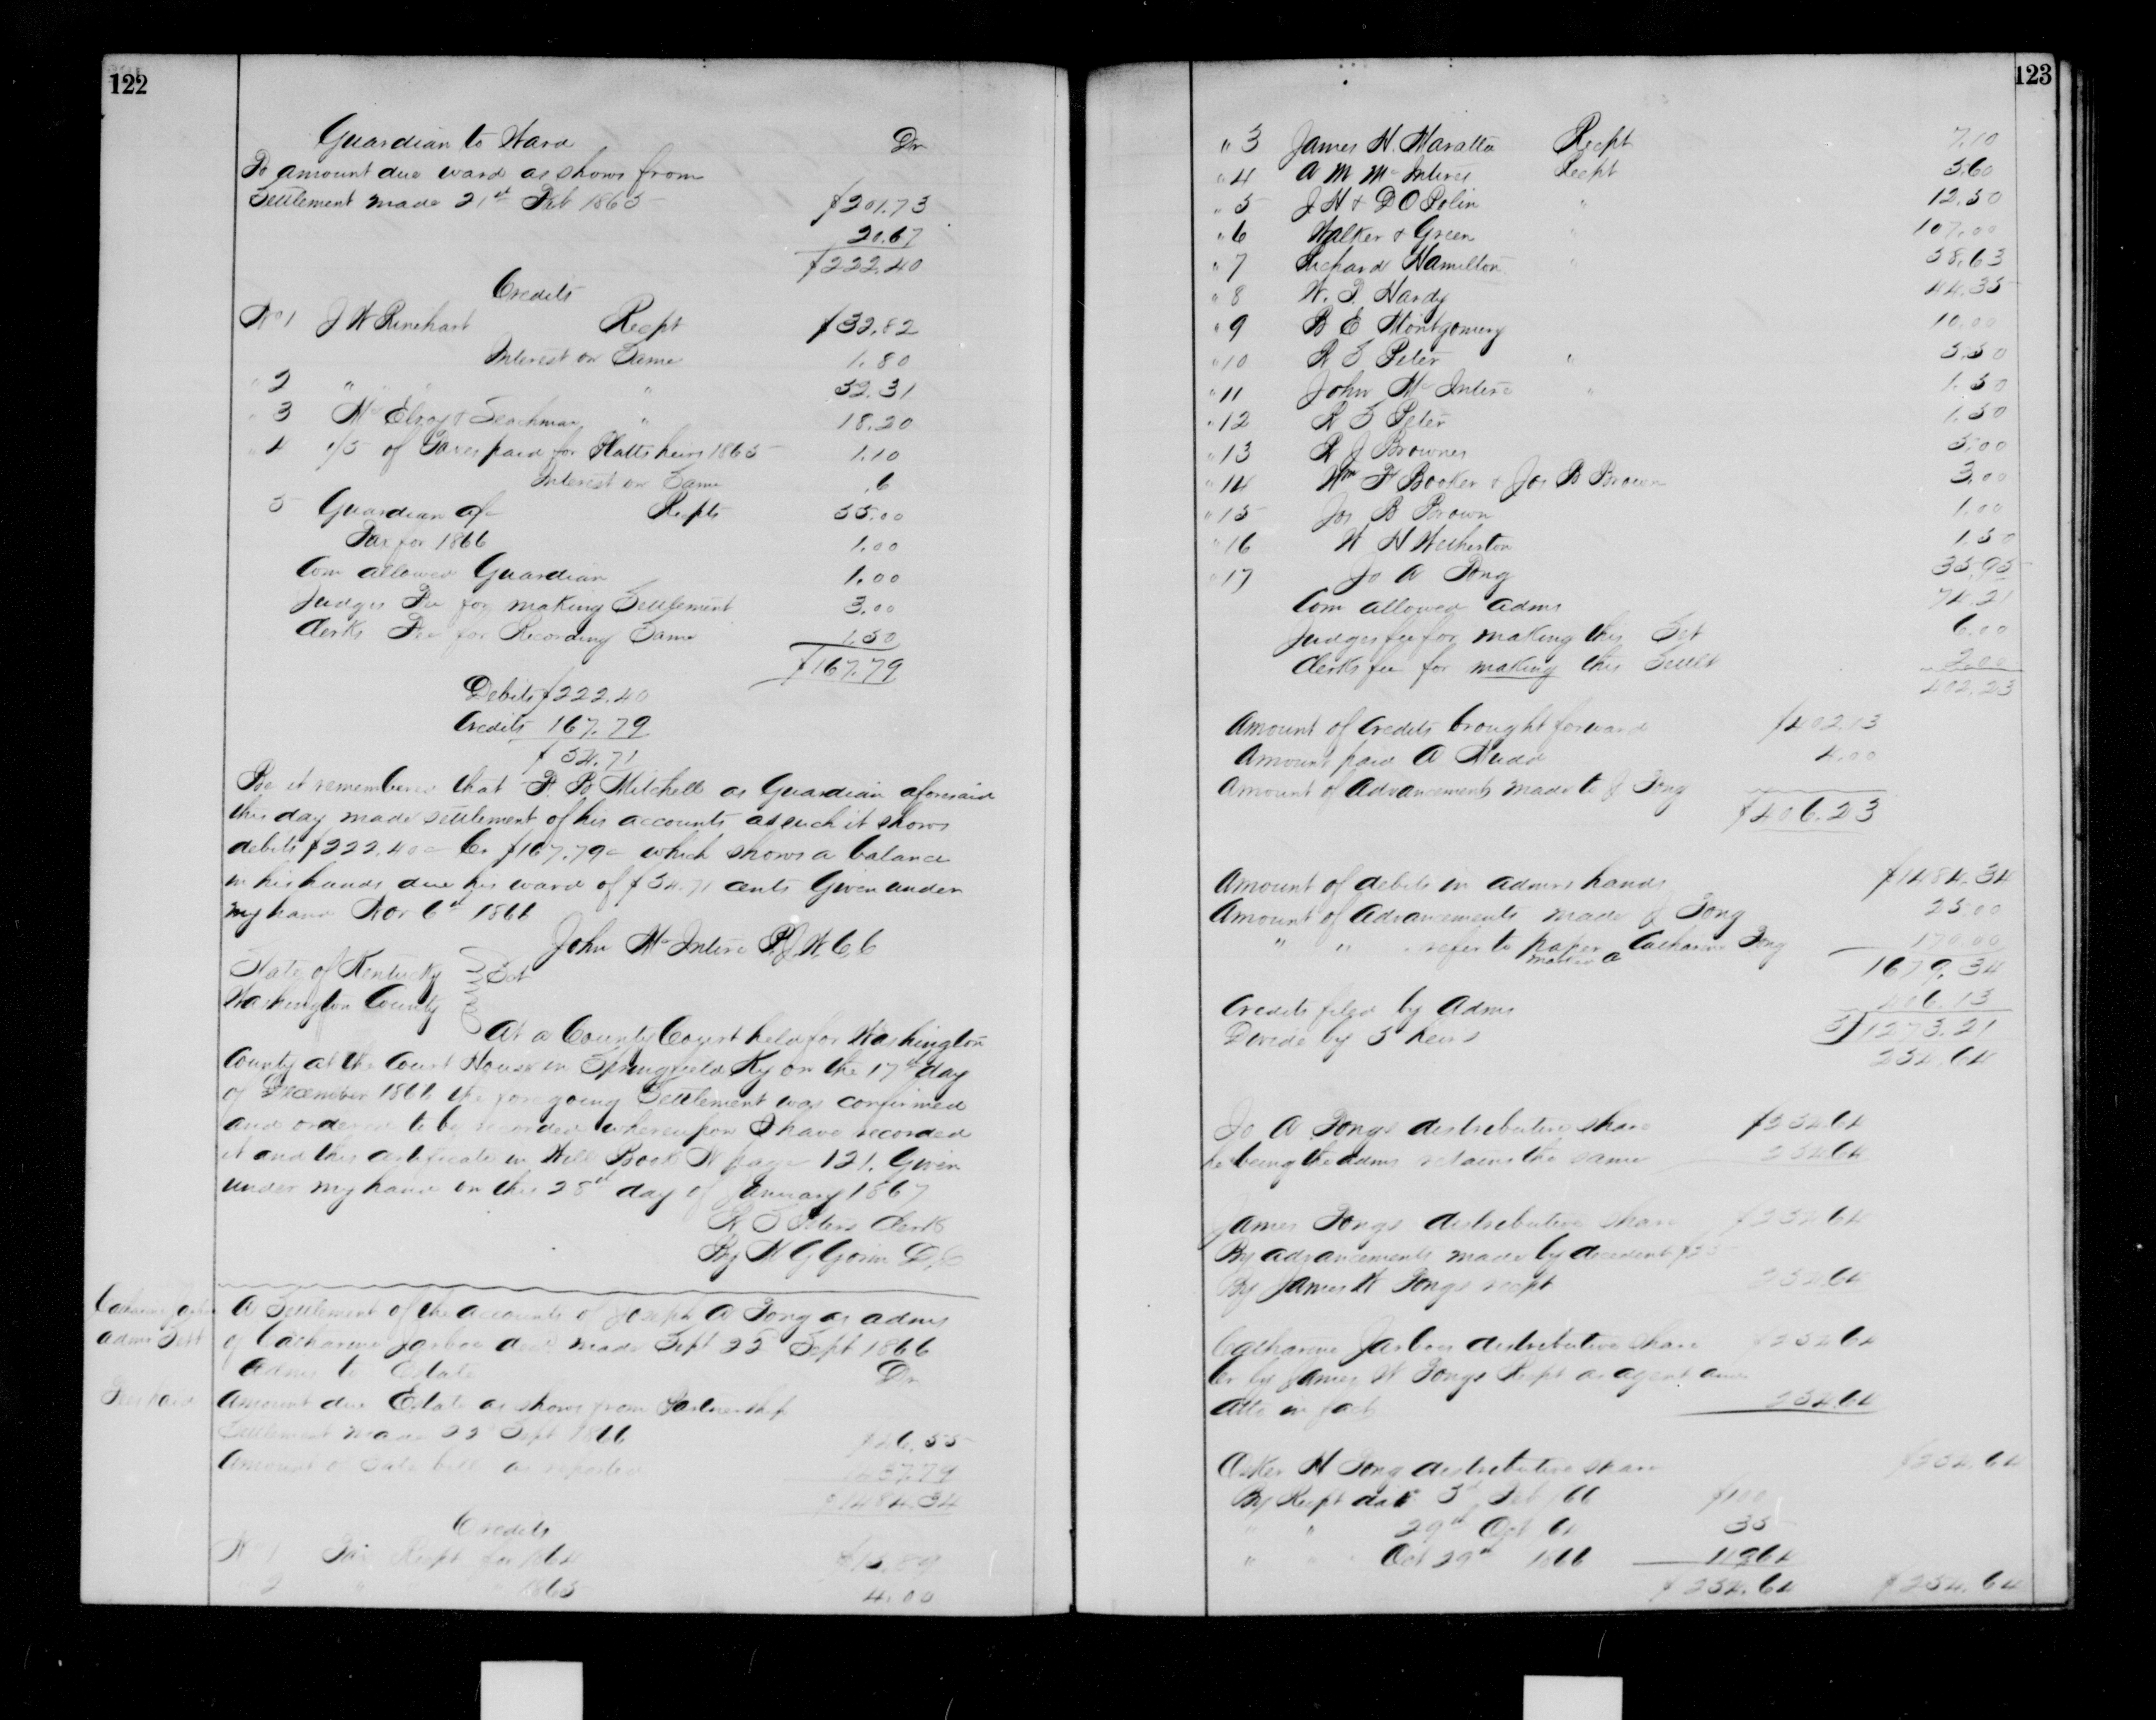 122
Guardian to Ward Dr
To amount due ward as shows from
Settlement made 21st Feb 1865 $201.73
20.67
$222.40
Credits
No 1 J W Rinehart Recpt $32.82
Interest on Same 1.80
" 2 " " " 52.31
" 3 McElroy & " 18.20
" 4 1/5 of Taxes paid for heirs 1865 1.10
Interest on Same .6
5 Guardian afc Recpts 55.00
Tax for 1866 1.00
Com allowed Guardian 1.00
Judges Fee for making Settlement 3.00
Clerks Fee for Recording Same 1.50
$167.79
Debits $222.40
Credits 167.79
$54.71
Be it remembered that P. B Mitchell as Guardian aforesaid
this day made settlement of his accounts as such it shows
debits $222.40c Cr $167.79c which shows a balance
in his hands due his ward of $54.71 cents Given under
my hand Nov 6th 1866
John McIntire P.J.W.C.C
State of Kentucky
Washington County Sct
At a County Court held for Washington
County at the Court House in Springfield Ky on the 17th day
of December 1866 the foregoing Settlement was confirmed
and ordered to be recorded whereupon I have recorded
it and this certificate in Will Book N page 121. Given
under my hand on this 28th day of January 1867
Clerk
By D.C
A Settlement of the accounts of Joseph A Tong as admr
of Catharine Jarboe decd made Sept 22 Sept 1866
Catharine
admr Sett
Admr to Estate Dr
Fees paid
Amount due Estate as shows from Partnership
Settlement made 22d Sept 1866
Amount of Sale bill as reported
$1484.34
Credits
No 1 Tax Recpt for 1864 $15.89
" 2 " " " 1865 4.00
123
" 3 James H. Maratta Recpt 7.10
" 4 A M McIntire Recpt 5.60
" 5 J H & D O Polin " 12.50
" 6 Walker & Green " 107.00
" 7 Richard Hamilton " 58.63
" 8 W. P. Hardy 44.35
" 9 B E Montgomery 10.00
" 10 R S Peter " 5.50
" 11 John McIntire " 1.50
" 12 R S Peter 1.50
" 13 R J Browne 5.00
" 14 Wm F Booker & Jos B Brown 3.00
" 15 Jos B Brown 1.00
" 16 W H Wetherton 1.50
" 17 Jo A Tong 35.95
Com allowed adms 74.21
Judges fee for making this Set 6.00
Clerks fee for making this Settlt 2.00
402.23
Amount of Credits brought forward $402.13
Amount paid A 4.00
Amount of Advancements made to J Tong
$406.23
Amount of debits in admrs hands $1484.34
Amount of Advancements made J Tong 25.00
" " " refer to paper marked a Catharine Tong 170.00
1679.34
Credits filed by Adms 406.13
Divide by 5 heirs 5)1273.21
254.64
Jo A Tongs distributive share $254.64
he being the adms retains the same 254.64
James Tongs distributive share $254.64
By advancements made by decedent $25
By James W Tongs recpt 254.64
Catharine Jarboes distributive share $254.64
Cr by James W Tongs Recpt as agent and
atto in fact 254.64
Osker H Tong distributive share $254.64
By Recpt date 3d Feb /66 $100
" " 29th Oct 64 35
" " Oct 29th 1866 119.64
$254.64 $254.64